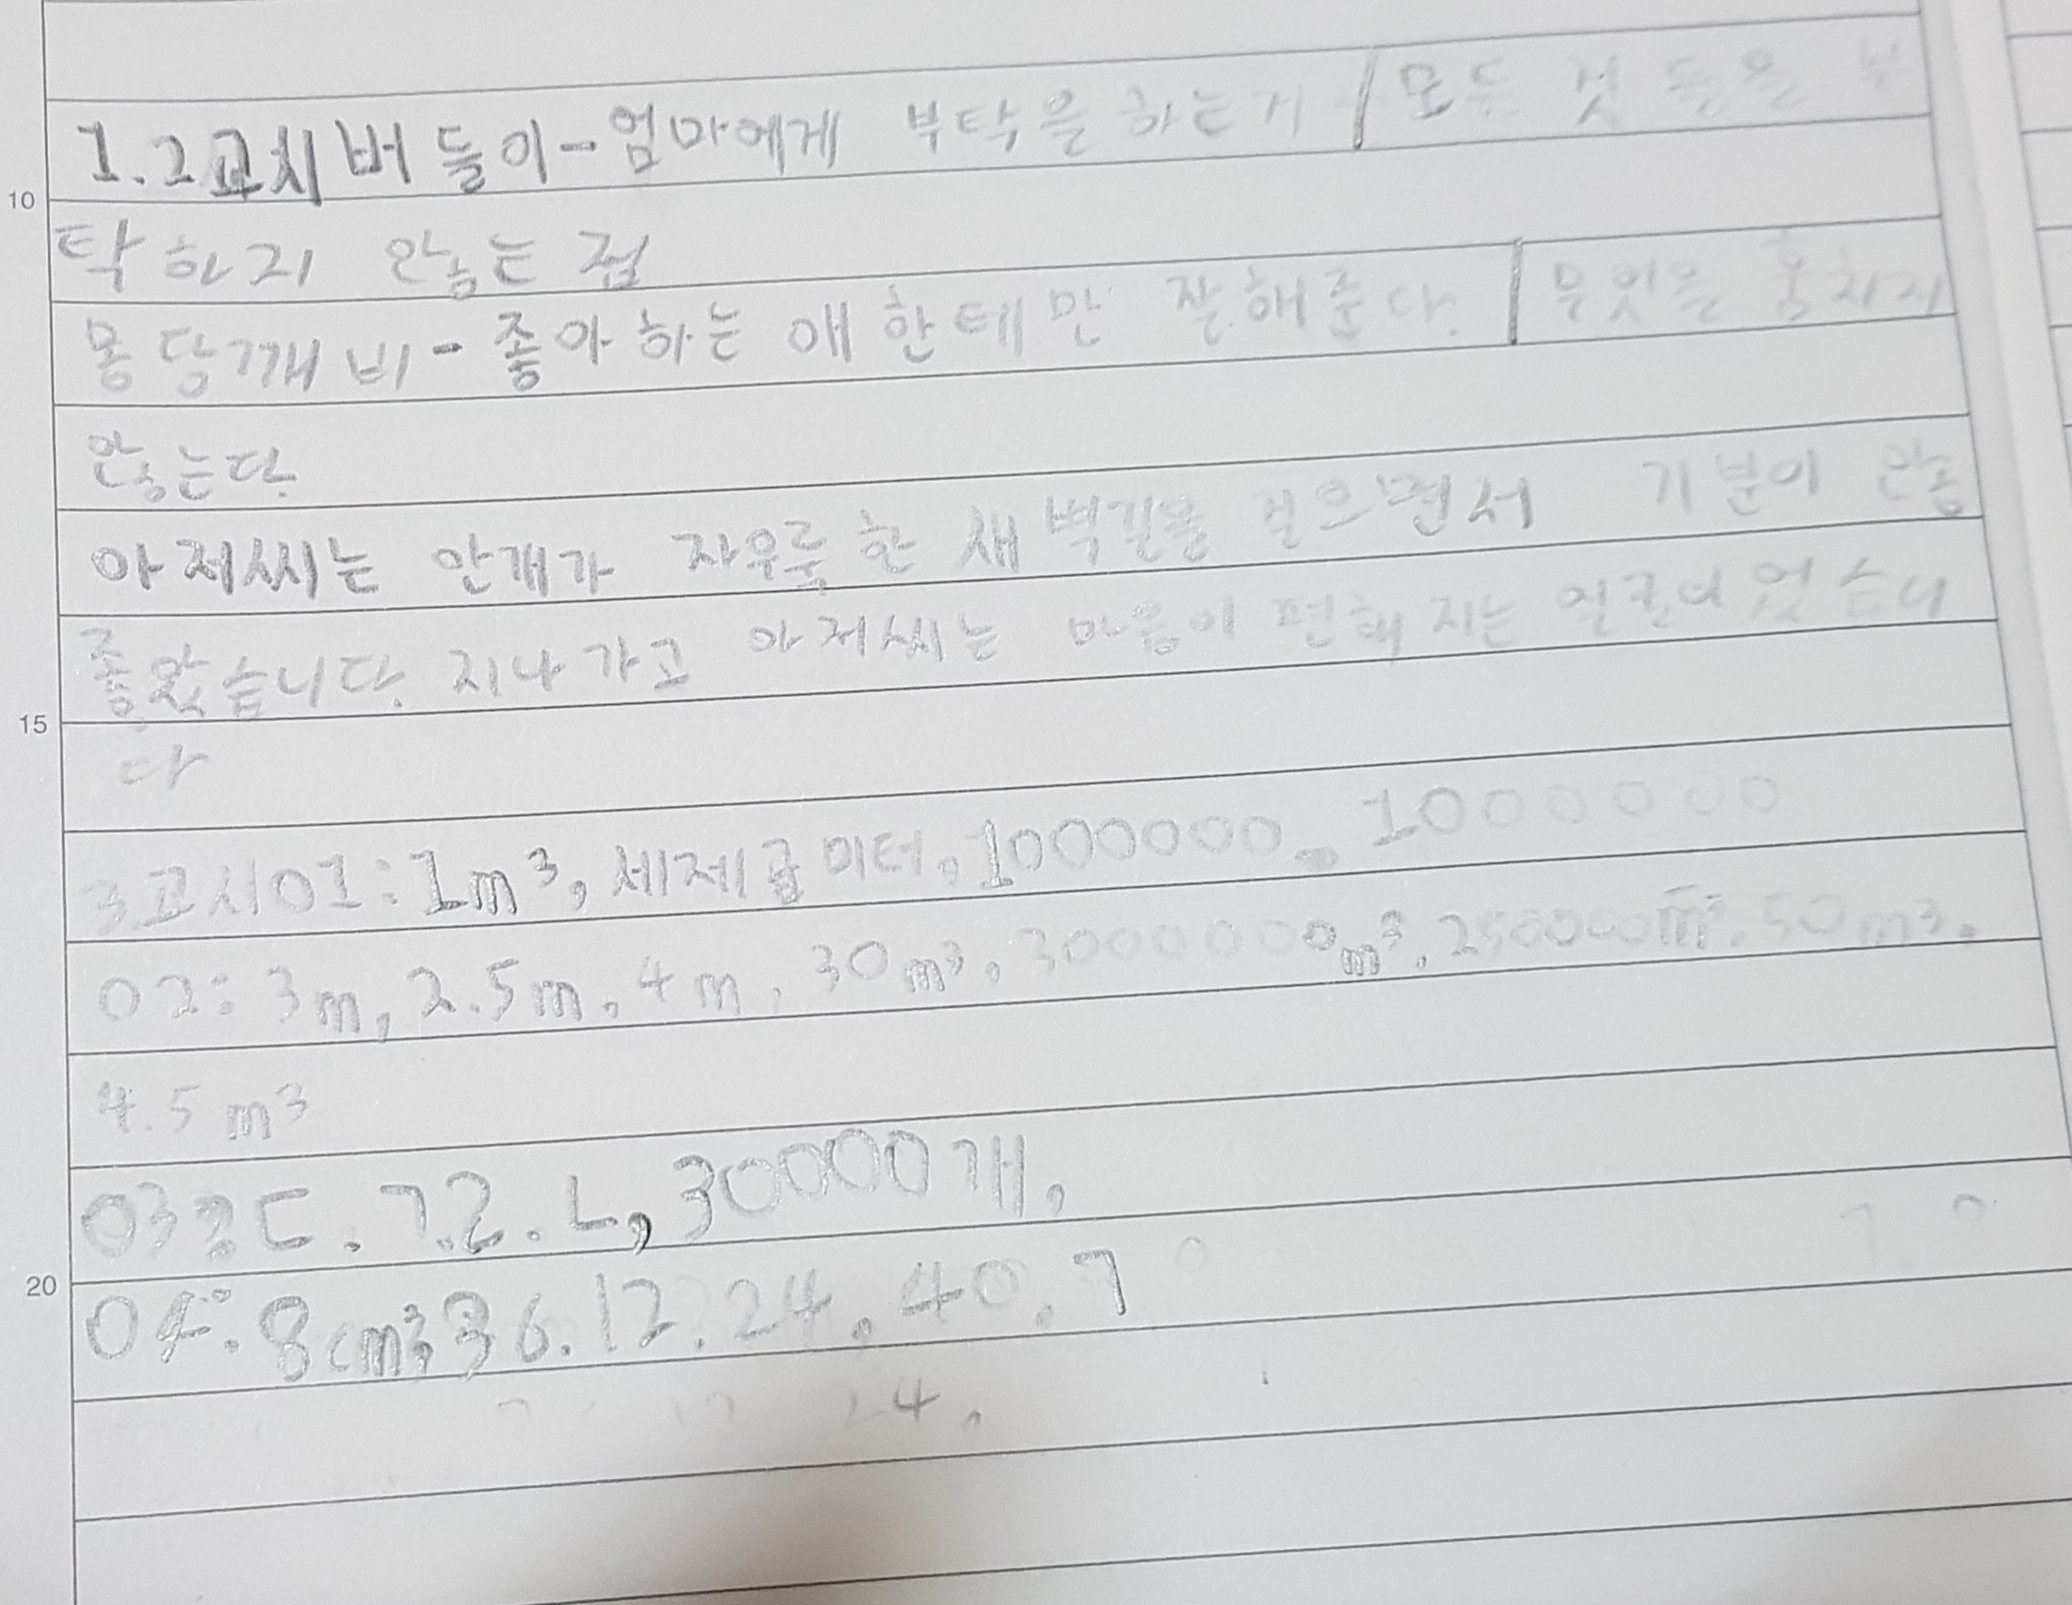 1.2교시 버들이-엄마에게 부탁을 하는거 / 모든 것 들을 부
탁하지 않는 점
몽당깨비-좋아하는 애 한테만 잘해준다. / 무엇을 훔치지
않는다.
아저씨는 안개가 자욱룩한 새벽길을 걸으면서 기분이 안좋
좋았습니다. 지나가고 아저씨는 마음이 편해 지는
다
3교시01: 1m³, 세제곱미터, 1000000. 1000000
02: 3m, 2.5m. 4m, 30m³, 30000000m³. 250000m³. 50m³.
4.5m³
03: ㄷ. 7.2. ㄴ, 30000개,
04: 8cm³, 36. 12. 24. 40. ㄱ
24.
10
15
20